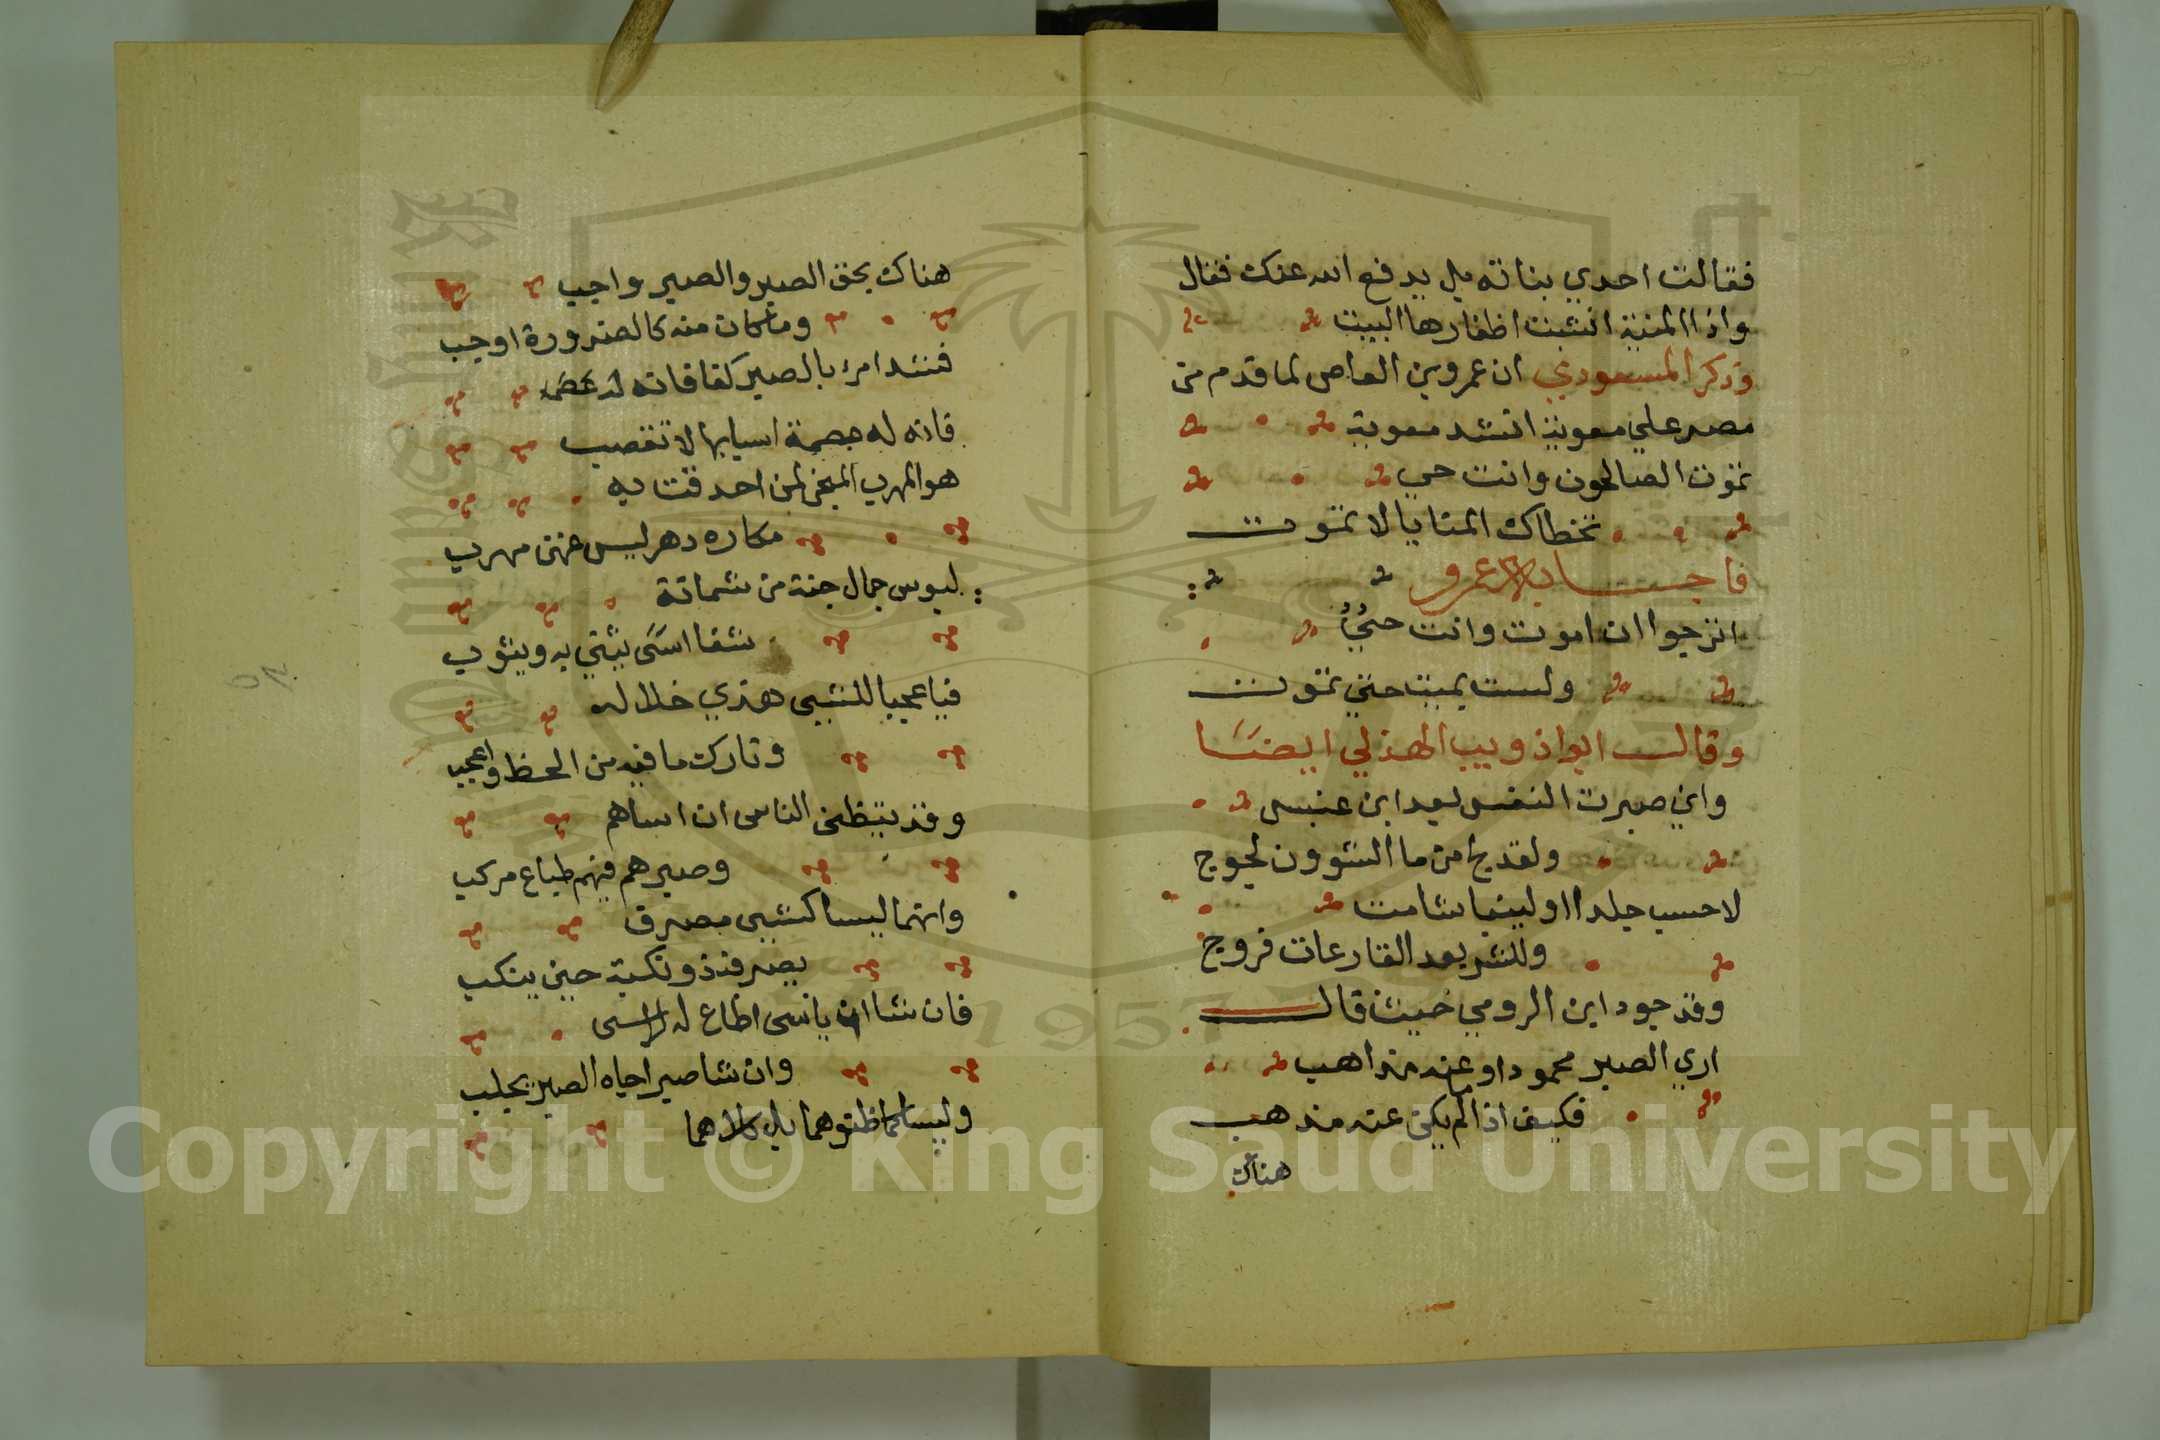 فقالت احدي بناته بل يدفع الله عنك فقال
واذا المنية انشبت اظفارها البيت
وذكر المسعودي ان عمرو بن العاص لما قدم من
مصر علي معوية انشد معوية
تموت الصالحون وانت حي
تخطاك المنايا لا تموت
فاجابه عمرو
اترجوا ان اموت وانت حيٌ
ولست بميت حتي تموت
وقال ابوا ذويب الهذلي ايضا
واني صبرت النفس بعد ابن عنبس
ولقد لج من ما الشوون لجوج
لاحسب جلدا او لينبا شامت
وللشر بعد القارعات فروج
وقد جود ابن الرومي حيث قال
اري الصبر محمودا وعنه مذاهب
فكيف اذا لم يكن عنه مذهب
هناك
هناك يحق الصبر والصبر واجب
وما كان منه كالضرورة اوجب
فشد امرء بالصبر كفا فانه له عصمة
فانه له عصمة اسبابها لا تقضب
هو المهرب المنجي لمن احدقت به
مكاره دهر ليس عنهن مهرب
لبوس جمال جنة من شماتة
شفا اسي يثني به ويثوب
فيا عجبا للشيي هذي خلاله
وتارك ما فيه من الحظ واعجب
وقد يتظني الناس ان اساهم
وصبرهم فيهم طباع مركب
وانهما ليسا كشيي مصرف
يصرفه ذو نكبة حين ينكب
فان شا ان ياسي اطاع له الاسي
وان شا صبرا جاه الصبر يجلب
وليسا كما ظنوهما بل كلاهما
Copyright © King Saud University
1957